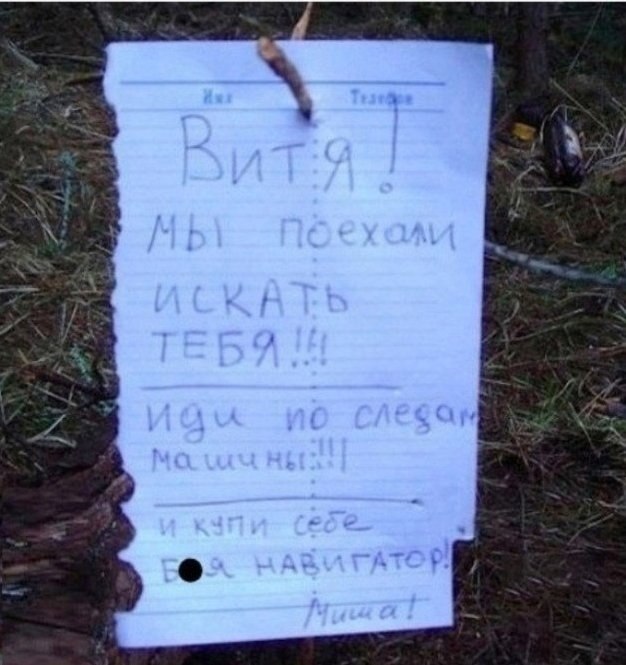 Имя Телефон
Витя!
мы поехали
искать
ТЕБЯ!!!
иди по следам
машины!!!
и купи себе
Б●я НАВИГАТОР!
Миша!